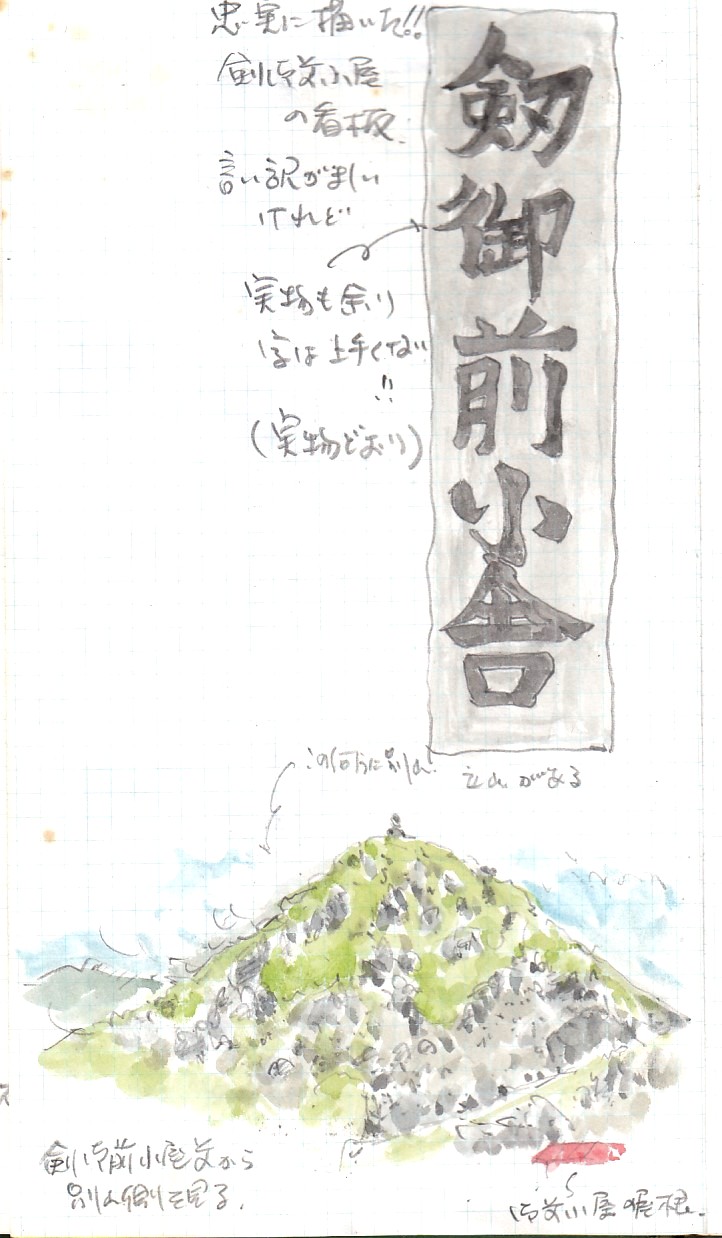 忠実に描いた!!
剣御前小屋
の看板.
言い訳がましい
けれど
実物も余り
字は上手くない
!!
(実物どおり)
劔御前小舎
この向うに別山.
立山がある
剣御前小屋前から
別山側を見る.
御前小屋の屋根.